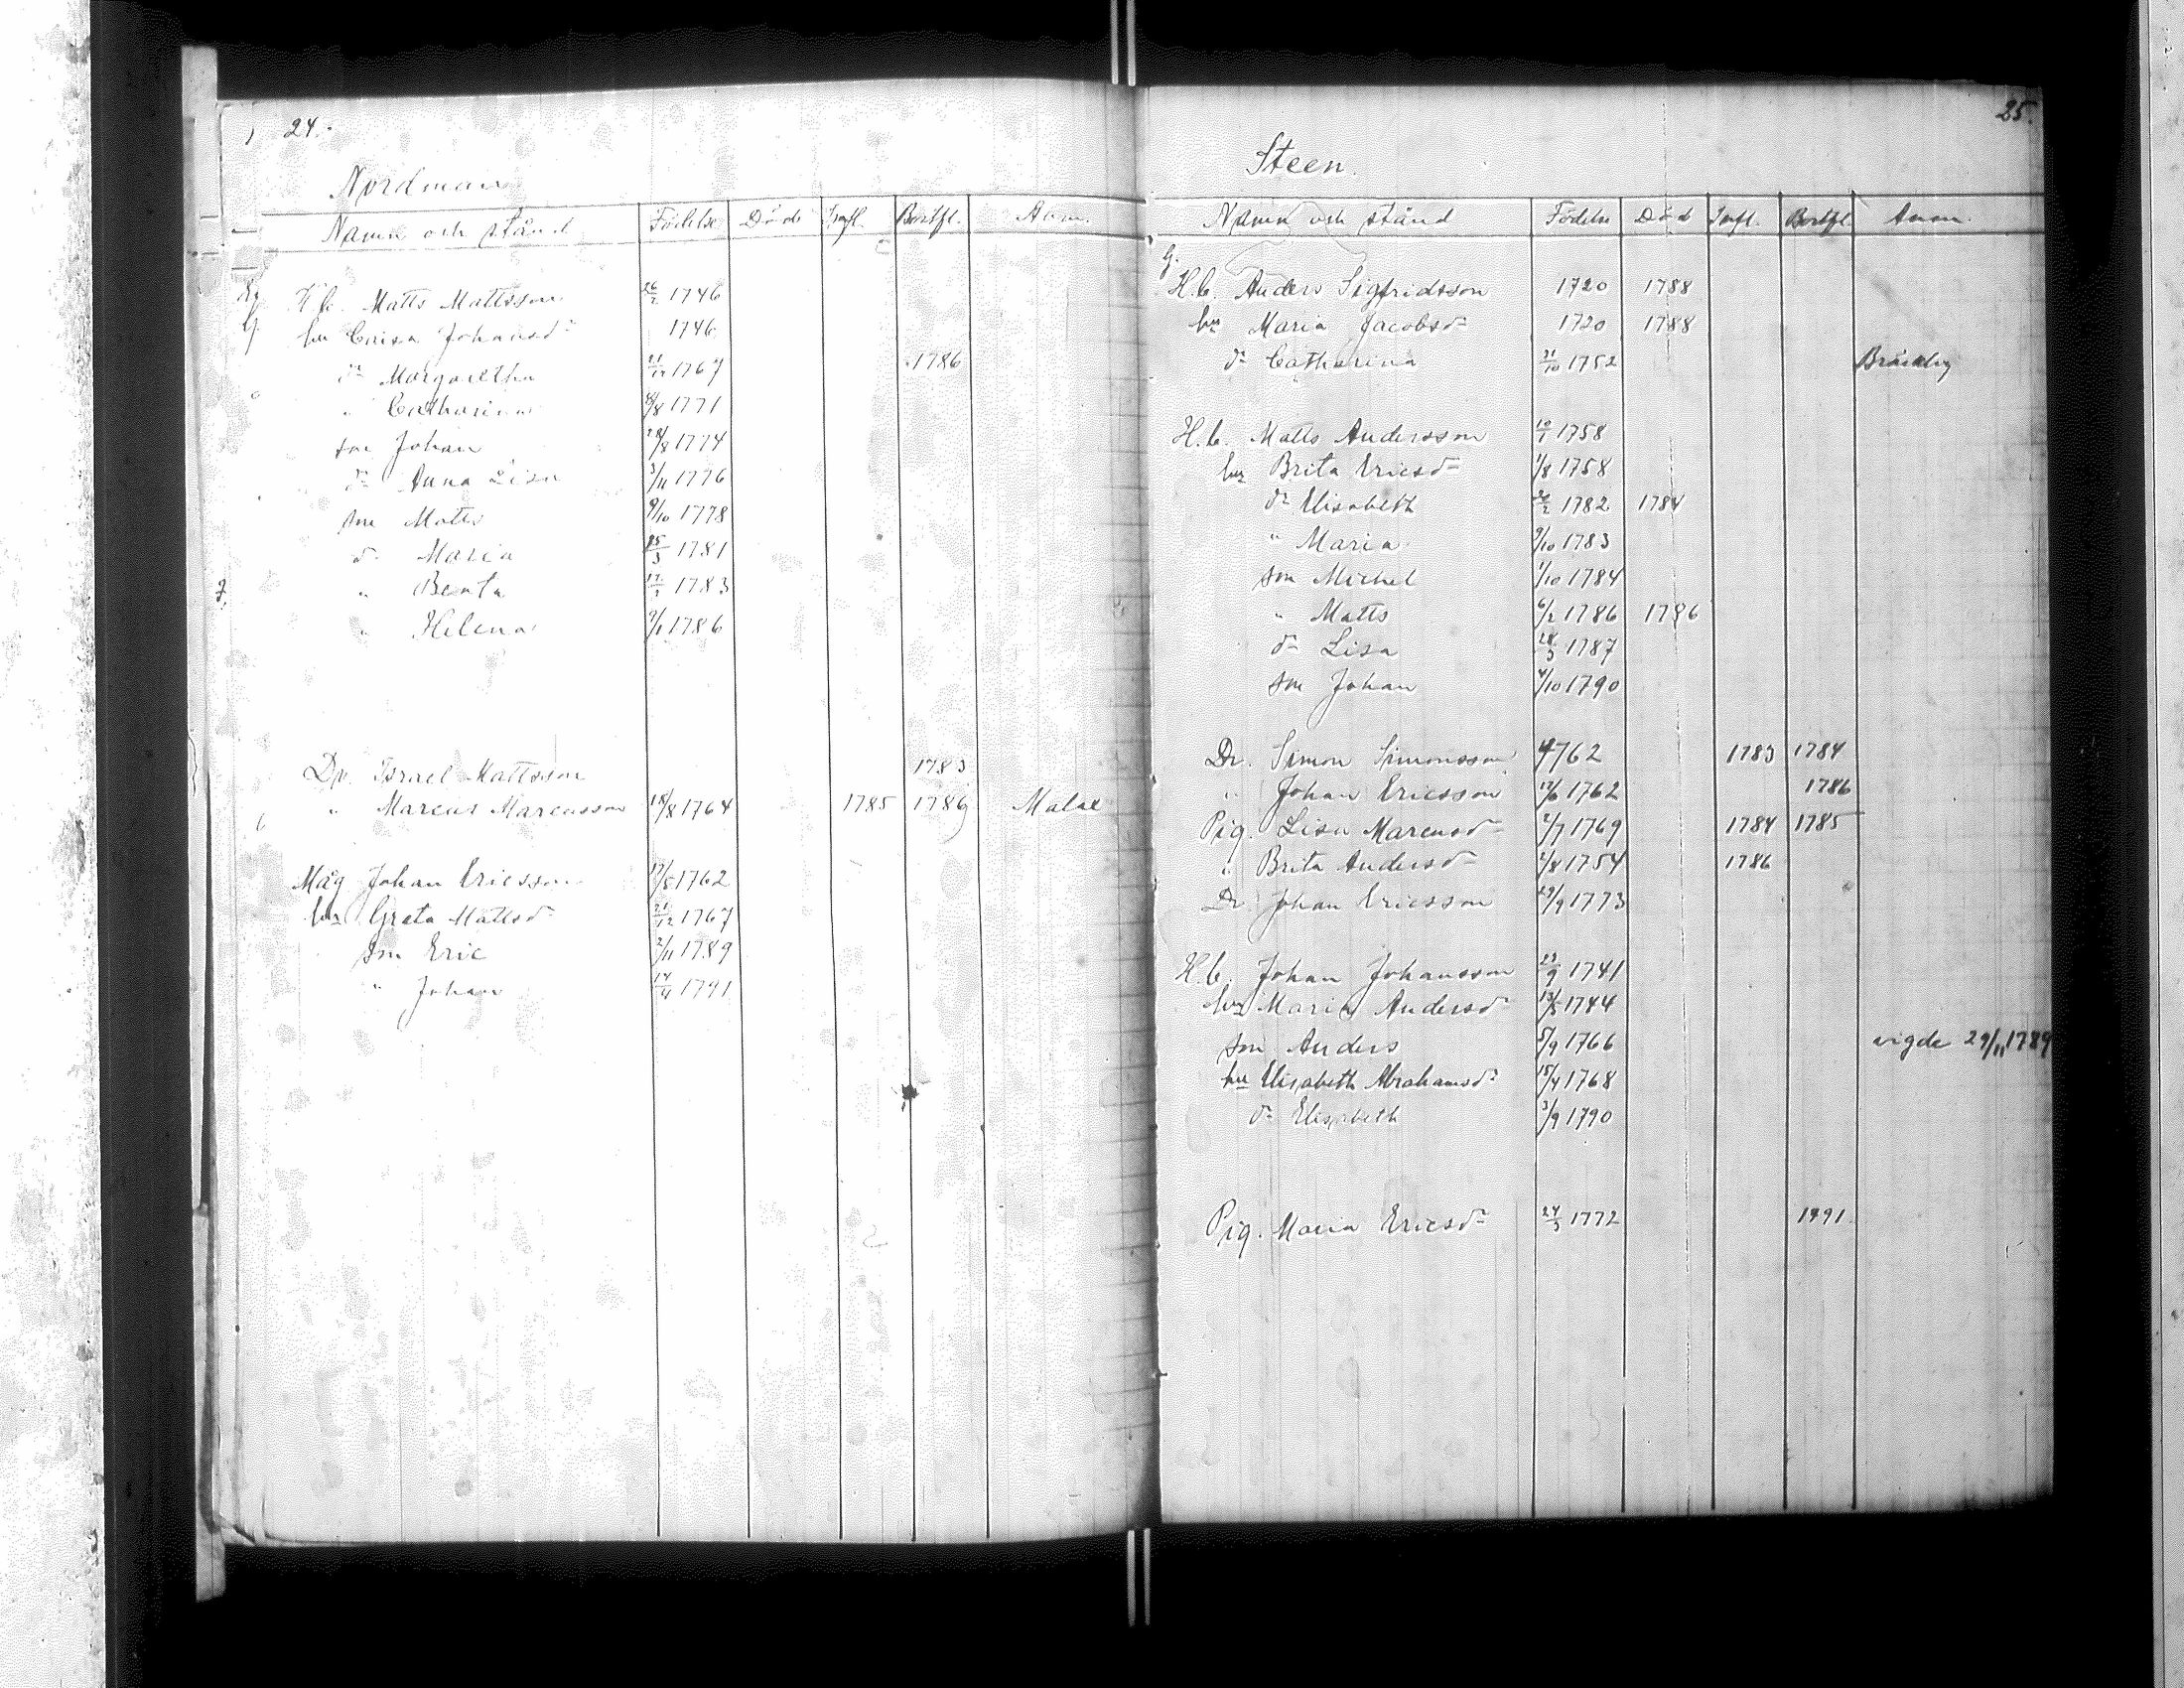 24.
Nordman
Namn och stånd Födelse Död Inyfl. Bortfl. Anm.
H.b. Matts Mattsson 26/2 1746
hu Caisa Johansdr 1746
dr Margaretha 21/12 1767 1786
" Catharina 8/8 1771
son Johan 28/8 1774
dr Anna Lisa 3/11 1776
son Matts 9/10 1778
dr Maria 25/3 1781
" Beata 1783
" Helena 9/1 1786
Dr. Israel Mattsson 1783
" Marcus Marcusson 18/8 1764 1785 1786 Malax
Måg Johan Ericsson 17/5 1762
hu Greta Mattsdr 21/12 1767
son Eric 2/11 1789
" Johan 14/11 1791
25.
Steen.
Namn och stånd Födelse Död Infl. Bortfl. Anm.
G.
H.b. Anders Sigfridsson 1720 1788
hu Maria Jacobsdr 1720 1788
dr Catharina 21/10 1752
H.b. Matts Andersson 10/1 1758
hu Brita Ericsdr 1/8 1758
dr Elisabeth 1782 1784
" Maria 9/10 1783
son Michel 1/10 1784
" Matts 6/2 1786 1786
dr Lisa 28/3 1787
son Johan 4/10 1790
Dr. Simon Simonsson 1762 1783 1784
" Johan Ericsson 17/6 1762 1786
Pig. Lisa Marcusdr 2/7 1769 1784 1785
" Brita Andersdr 2/8 1754 1786
Dr. Johan Ericsson 29/9 1773
H.b. Johan Johansson 23/9 1741
hu Maria Andersdr 13/5 1744
son Anders 5/9 1766 vigde 29/11 1789
hu Elisabeth Abrahamsdr 15/4 1768
dr Elisabeth 3/9 1790
Pig. Maria Ericsdr 24/3 1772 1791